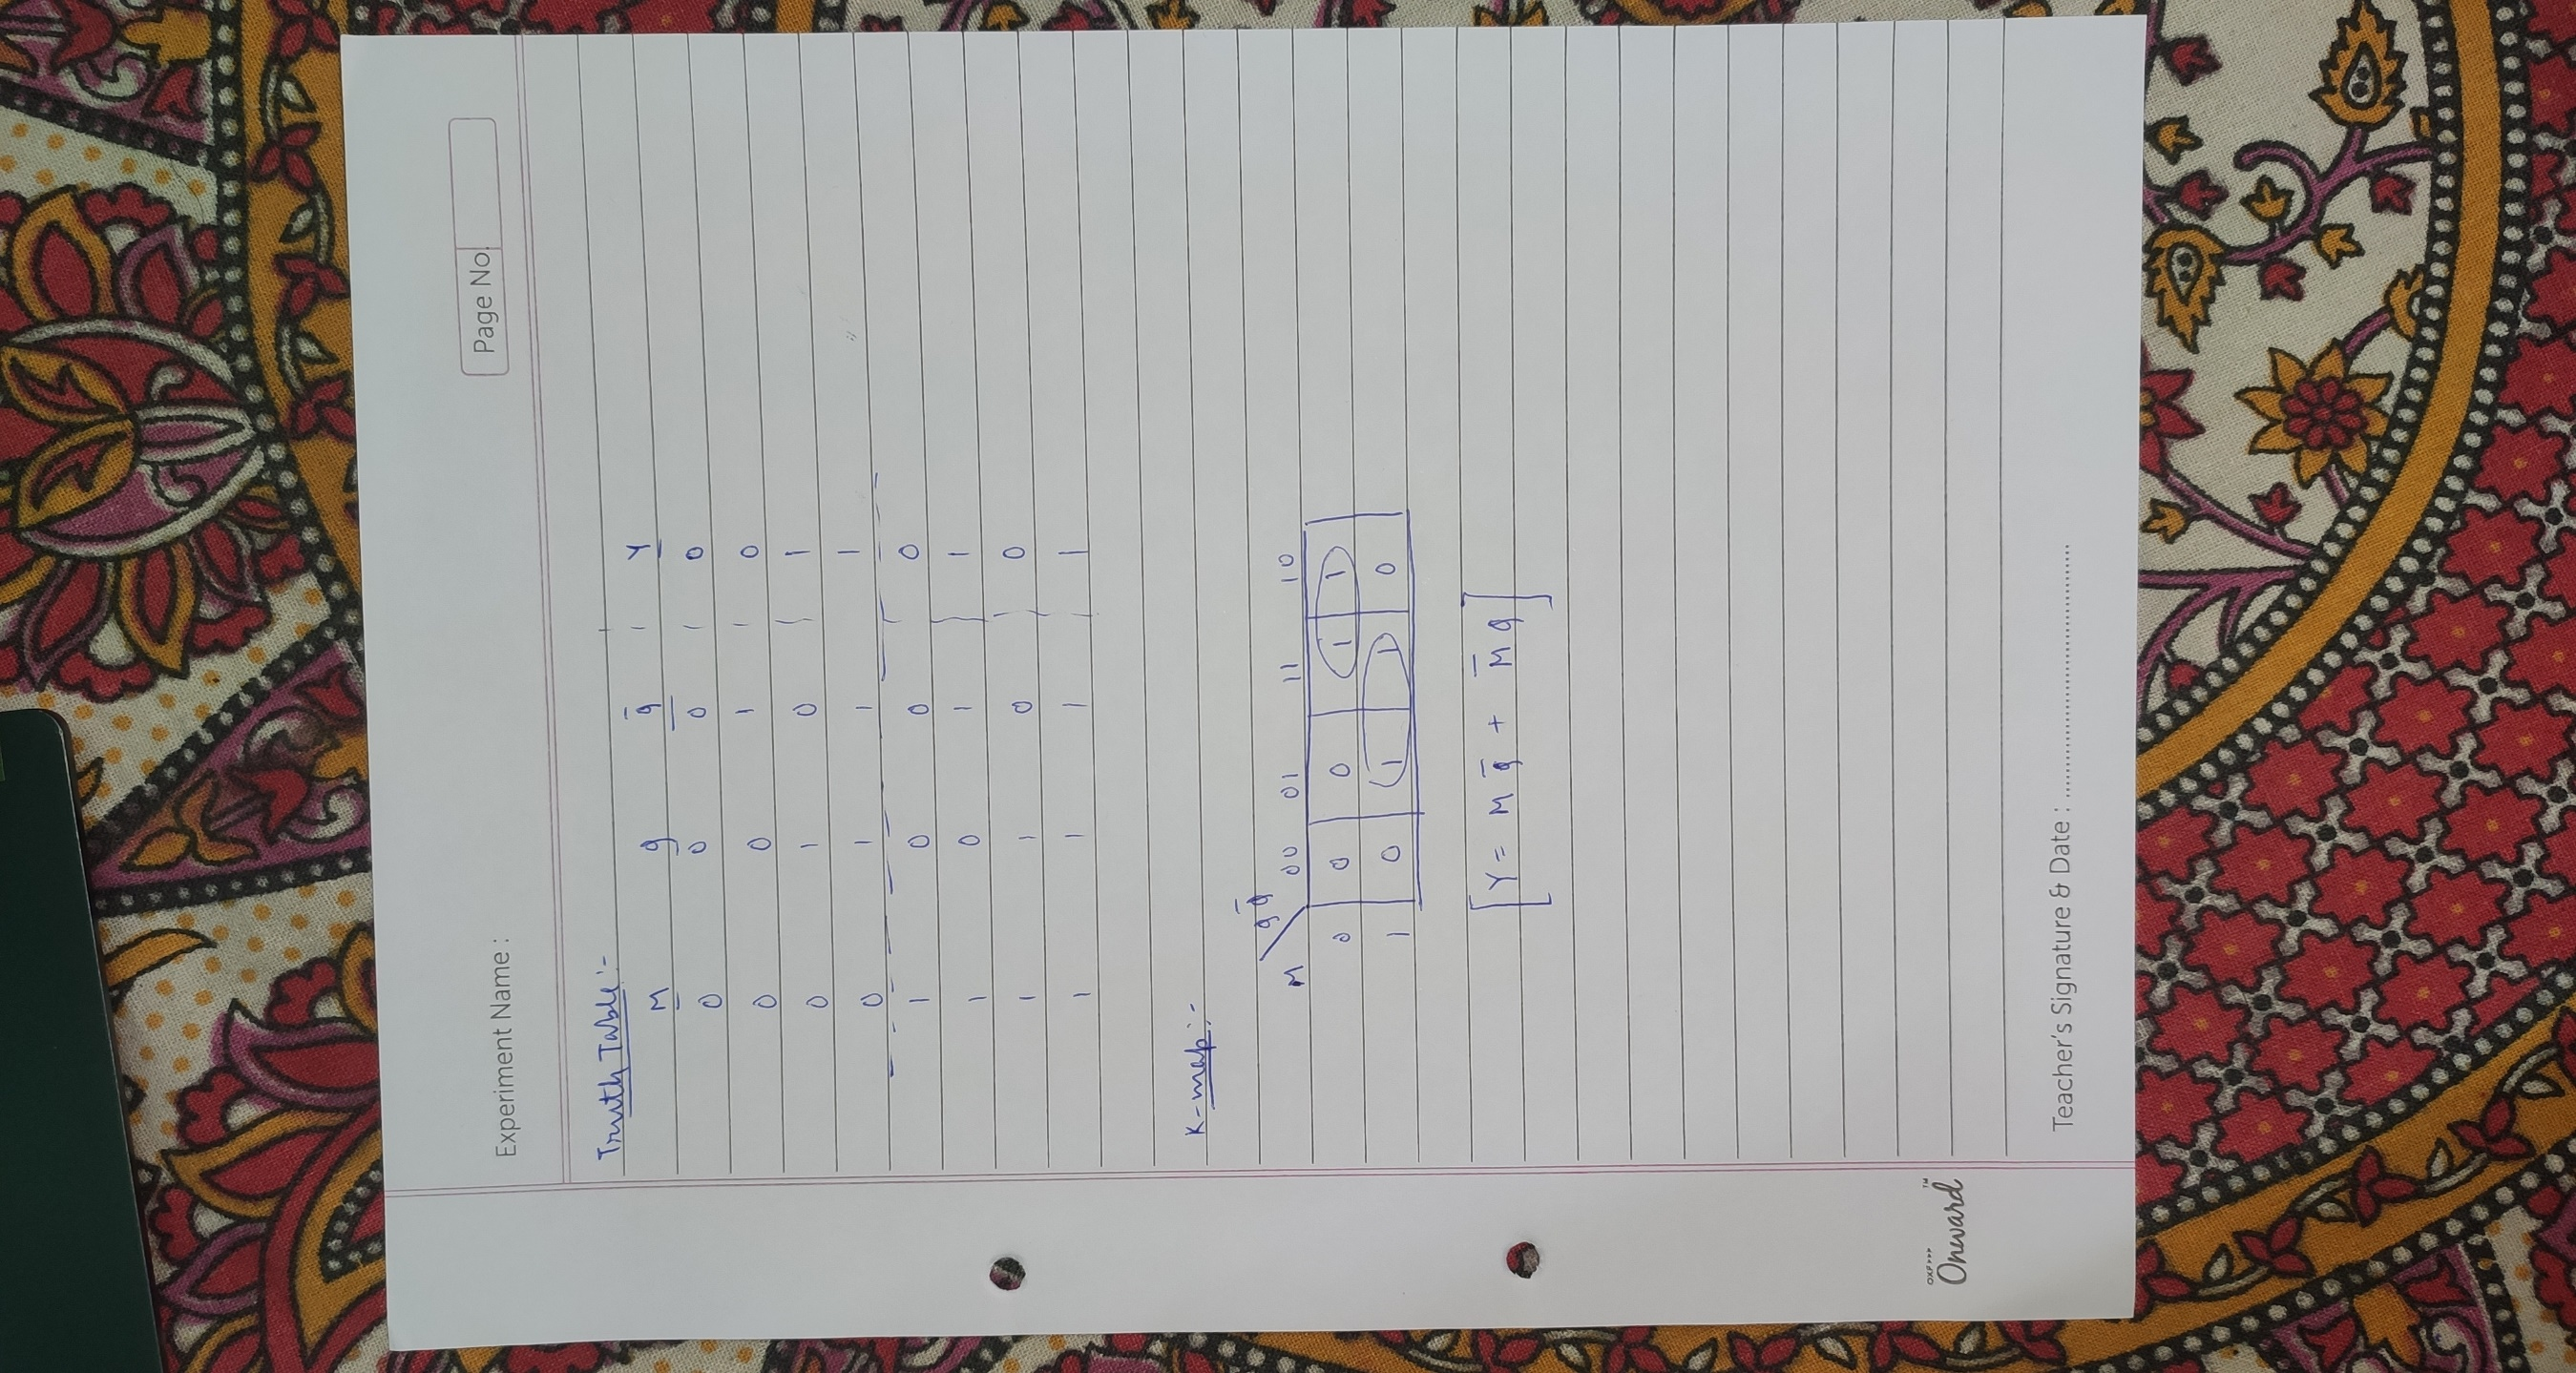 Page No.
Experiment Name :
Truth Table:-
M q q̄ | Y
0 0 0 | 0
0 0 1 | 0
0 1 0 | 1
0 1 1 | 1
1 0 0 | 0
1 0 1 | 1
1 1 0 | 0
1 1 1 | 1
K-map:-
M q q̄ 00 01 11 10
0 0 0 1 1
1 0 1 1 0
[Y = M q̄ + M̄ q]
Onward™
Teacher's Signature & Date : ........................................